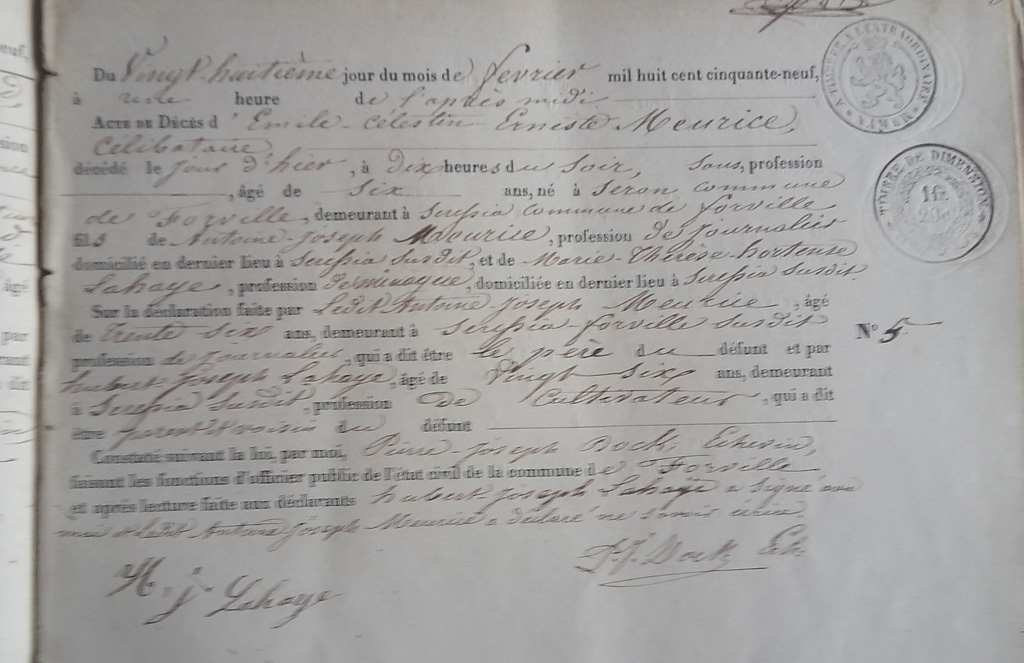 Du Vingt-huitième jour du mois de février mil huit cent cinquante-neuf,
à une heure de l'après midi.
ACTE DE DÉCÈS d'Emile-Célestin Erneste Meurice,
Célibataire,
décédé le jour d'hier, à dix heures du soir, sans, profession
, âgé de six ans, né à Seron commune
de Forville, demeurant à Seressia commune de forville
fils de Antoine-Joseph Meurice, profession de Journalier
domicilié en dernier lieu à Seressia susdit, et de Marie-Thérèse-hortense
Lahaye, profession de menagère, domiciliée en dernier lieu à Seressia susdit
Sur la déclaration faite par Ledit Antoine Joseph Meurice, âgé
de trente six ans, demeurant à Seressia-forville susdit
profession de Journalier, qui a dit être le père du défunt et par
hubert Joseph Lahaye, âgé de vingt six ans, demeurant
à Seressia susdit, profession de Cultivateur, qui a dit
être parent et voisin du défunt
Constaté suivant la loi, par moi, Pierre-Joseph Dock, Echevin,
faisant les fonctions d'officier public de l'état civil de la commune de Forville
et après lecture faite aux déclarants hubert Joseph Lahaye a signé avec
moi et Ledit Antoine Joseph Meurice a déclaré ne savoir écrire
P. J. Dock Ech.
H. J. Lahaye
N° 5
A TIMBRER A L'EXTRAORDINAIRE
TIMBRE DE DIMENSION
1fr.